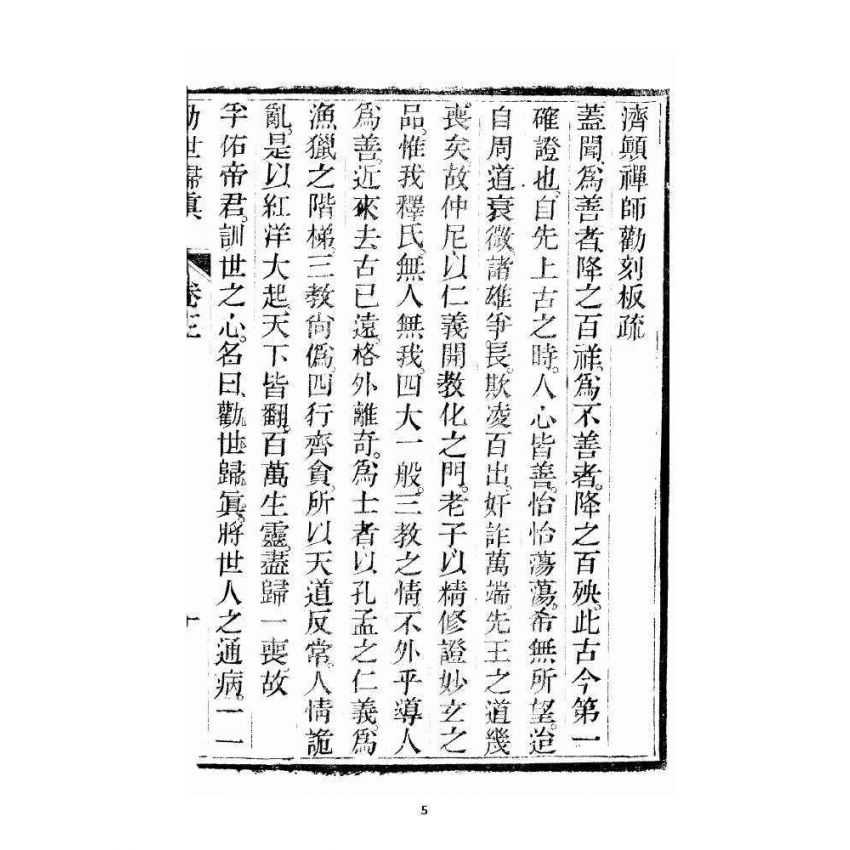 濟顛禪師勸刻板疏
蓋聞爲善者降之百祥。爲不善者。降之百殃。此古今第一
確證也。自先上古之時。人心皆善。怡怡蕩蕩。希無所望。迨
自周道衰微。諸雄爭長。欺凌百出。奸詐萬端。先王之道幾
喪矣。故仲尼以仁義開教化之門。老子以精修證妙玄之
品。惟我釋氏。無人無我。四大一般。三教之情。不外乎導人
爲善。近來去古已遠。格外離奇。爲士者以孔孟之仁義。爲
漁獵之階梯。三教尙僞。四行齊貪。所以天道反常。人情詭
亂。是以紅洋大起。天下皆翻。百萬生靈。盡歸一喪。故
孚佑帝君。訓世之心。名曰。勸世歸眞。將世人之通病。一一
勸世歸眞 卷三 十
5